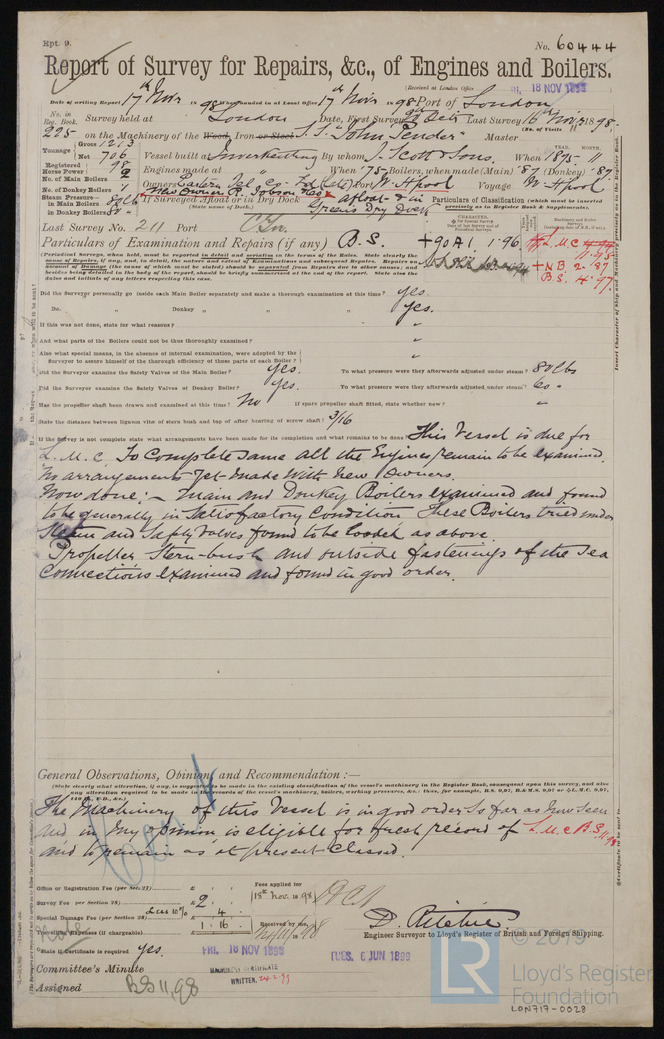 Rpt. 9.
No. 60444
Report of Survey for Repairs, &c., of Engines and Boilers.
(Received at London Office FRI. 18 NOV 1898
Date of writing Report 17th Novr 1898 When handed in at Local Office 17th Novr 1898 Port of London
No. in Reg. Book. Survey held at London Date, First Survey Octr Last Survey 16 Novr 1898
225 on the Machinery of the Wood, Iron or Steel S.S. "John Pender" Master
(No. of Visits 11)
Tonnage Gross 1213
Net 706
Vessel built at Inverkeithing By whom J. Scott & Sons. When 1875 11
YEAR. MONTH.
Registered Horse Power 98
Engines made at When 75 Boilers, when made (Main) 87 (Donkey) 87
No. of Main Boilers 2
Owners Eastern Tel. Co. Ld Port W. Hpool Voyage W. Hpool
No. of Donkey Boilers 1
New Owners R. Jobson
Steam Pressure in Main Boilers 80 lb
in Donkey Boilers
If Surveyed Afloat or in Dry Dock afloat & in Green's Dry Dock
(State name of Dock.)
Particulars of Classification (which must be inserted precisely as in Register Book & Supplements).
Last Survey No. 211 Port
Particulars of Examination and Repairs (if any) B.S.
+90A1. 1.96
L.M.C.
11.95
+N.B. 2.87
B.S. 4.97
(Periodical Surveys, when held, must be reported in detail and seriatim in the terms of the Rules. State clearly the cause of Repairs, if any, and, in detail, the nature and extent of Examinations and subsequent Repairs. Repairs on account of Damage (the cause of which must be stated) should be separated from Repairs due to other causes; and besides being detailed in the body of the report, should be briefly summarized at the end of the report. State also the dates and initials of any letters respecting this case.
Did the Surveyor personally go inside each Main Boiler separately and make a thorough examination at this time? yes.
Do. " Donkey " " " yes.
If this was not done, state for what reasons? "
And what parts of the Boilers could not be thus thoroughly examined? "
Also what special means, in the absence of internal examination, were adopted by the Surveyor to assure himself of the thorough efficiency of those parts of each Boiler? "
Did the Surveyor examine the Safety Valves of the Main Boiler? yes. To what pressure were they afterwards adjusted under steam? 80 lbs
Did the Surveyor examine the Safety Valves of Donkey Boiler? yes. To what pressure were they afterwards adjusted under steam? 60 "
Has the propeller shaft been drawn and examined at this time? No If spare propeller shaft fitted, state whether new? "
State the distance between lignum vitæ of stern bush and top of after bearing of screw shaft? 3/16
If the Survey is not complete state what arrangements have been made for its completion and what remains to be done This Vessel is due for
L.M.C. To complete same all the Engines remain to be examined.
No arrangements yet made with new owners.
Now done:— Main and Donkey Boilers examined and found
to be generally in satisfactory condition These Boilers tried under
steam and Safety Valves found to be loaded as above.
Propeller Stern-bush and outside fastenings of the sea
connections examined and found in good order.
General Observations, Opinion, and Recommendation:—
(State clearly what alteration, if any, is suggested to be made in the existing classification of the vessel's machinery in the Register Book, consequent upon this survey, and also any alteration required to be made in the records of the vessel's machinery, boilers, working pressures, &c.; thus, for example, B.S. 9,97, B.&M.S. 9,97 or L.M.C. 9,97,
The Machinery of this Vessel is in good order so far as now seen
and in my opinion is eligible for fresh record of L.M.C B.S. 11-98
and to remain as at present Classed.
Office or Registration Fee (per Sec. 27) £ : :
Fees applied for
Survey Fee (per Section 28) £ 2 : :
18th Nov. 1898
less 10% 4
Special Damage Fee (per Section 28) £ 1 : 16 :
Received by me,
Travelling Expenses (if chargeable) £ : :
D. Ritchie
Engineer Surveyor to Lloyd's Register of British and Foreign Shipping.
State if Certificate is required yes.
Committee's Minute
FRI. 18 NOV 1898
TUES. 6 JUN 1899
MACHINERY CERTIFICATE
WRITTEN. 24.2.99
Assigned BS 11,98
© 2019
LR
Lloyd's Register
Foundation
LON717-0028